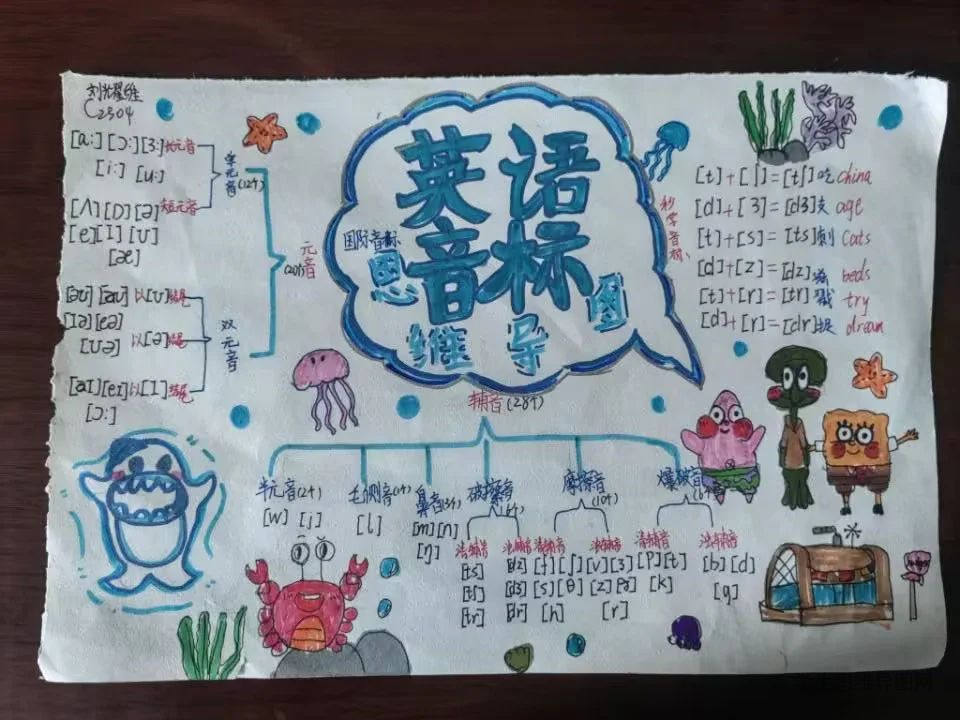 刘耀维
C2304
[a:] [ɔ:] [3:] 长元音
[i:] [u:]
[ʌ] [ɒ] [ə] 短元音
[e] [I] [ʊ]
[æ]
单元音(12个)
元音
(20个)
[əʊ] [aʊ] 以[ʊ]结尾
[Iə] [eə]
[ʊə] 以[ə]结尾
[aI] [eI] 以[I]结尾
[ɔ:]
双元音
英语
国际音标
音标
思维导图
秒学音标
[t]+[ʃ]=[tʃ]吃 China
[d]+[3]=[d3] age
[t]+[s]=[ts]刺 Cats
[d]+[z]=[dz] beds
[t]+[r]=[tr]戳 try
[d]+[r]=[dr]捉 dream
辅音(28个)
半元音(2个)
[w] [j]
舌侧音(1个)
[l]
鼻音(3个)
[m] [n]
[ŋ]
破擦音
(6个)
清辅音
[ts]
[tʃ]
[tr]
浊辅音
[dz]
[d3]
[dr]
摩擦音
(10个)
清辅音
[f] [ʃ]
[s] [θ]
[h]
浊辅音
[v] [3]
[z] [ð]
[r]
爆破音
(6个)
清辅音
[p] [t]
[k]
浊辅音
[b] [d]
[g]